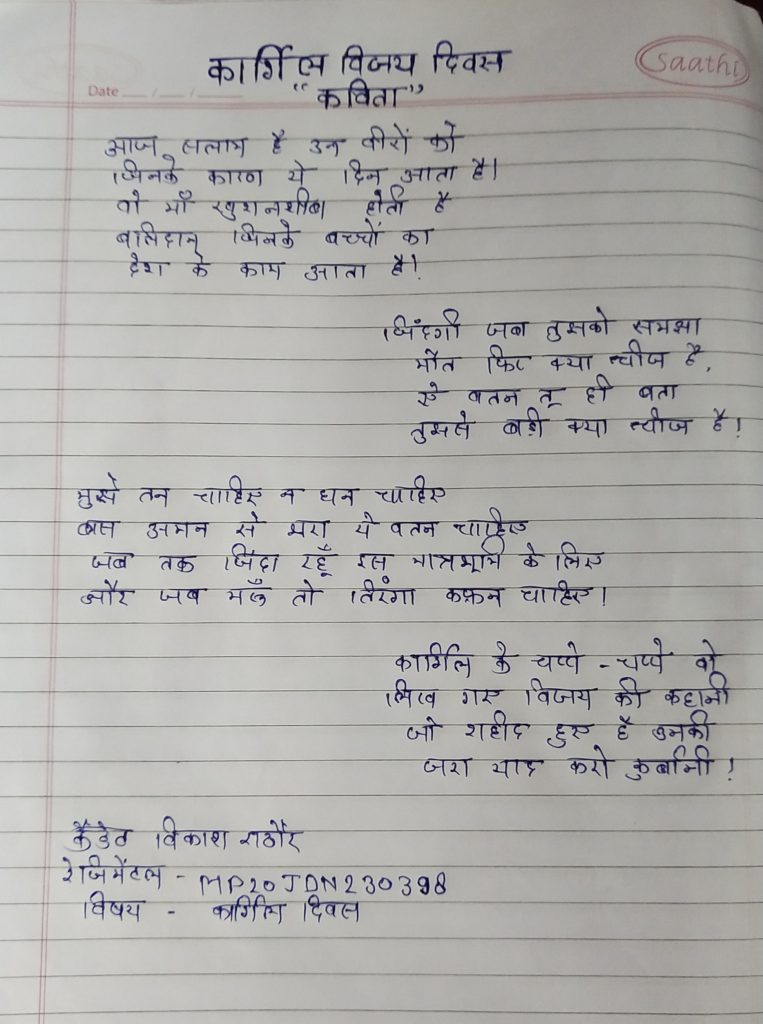 Saathi
Date
कार्गिल विजय दिवस
"कविता"
आज सलाम है उन वीरों को
जिनके कारण ये दिन आता है।
वो माँ खुशनशीब होती है
बलिदान जिनके बच्चों का
देश के काम आता है!
जिंदगी जब तुझको समझा
मौत फिर क्या चीज है,
ऐ वतन तू ही बता
तुझसे बड़ी क्या चीज है!
मुझे तन चाहिए न धन चाहिए
बस अमन से भरा ये वतन चाहिए
जब तक जिंदा रहूँ इस मातृभूमि के लिए
और जब मरूँ तो तिरंगा कफ़न चाहिए!
कारगिल के चप्पे - चप्पे वो
लिख गए विजय की कहानी
जो शहीद हुए है उनकी
जरा याद करो कुर्बानी!
कैडेट विकाश राठौर
रेजिमेंटल - MP20JDN230398
विषय - कारगिल दिवस